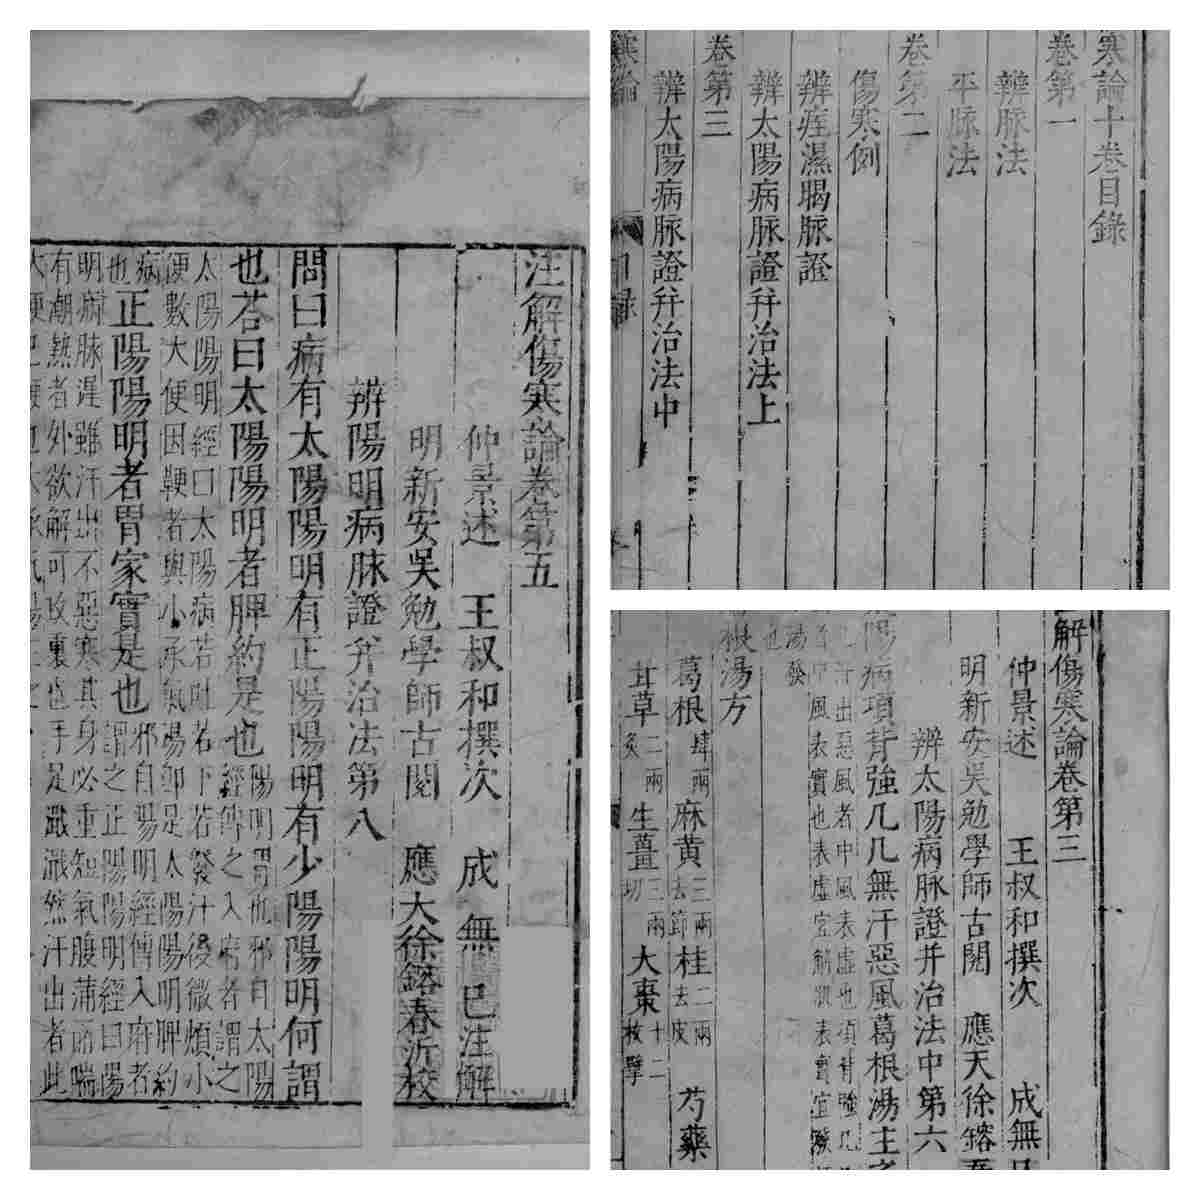 注解傷寒論卷第五
仲景述　王叔和撰次　成無巳注解
明新安吳勉學師古閱　應天徐鎔春沂校
辨陽明病脉證并治法第八
問曰病有太陽陽明有正陽陽明有少陽陽明何謂
也荅曰太陽陽明者脾約是也
陽明胃也邪自太陽
經傳之入府者謂之
太陽陽明經曰太陽病若吐若下若發汗後微煩小
便數大便因鞕者與小承氣湯即是太陽陽明脾約
病
也
正陽陽明者胃家實是也
邪自陽明經傳入府者
謂之正陽陽明經曰陽
明病脉遲雖汗出不惡寒其身必重短氣腹滿而喘
有潮熱者外欲解可攻裏也手足濈濈然汗出者此
寒論十卷目錄
卷第一
辨脉法
平脉法
卷第二
傷寒例
辨痓濕暍脉證
辨太陽病脉證并治法上
卷第三
辨太陽病脉證并治法中
解傷寒論卷第三
仲景述　王叔和撰次　成無
明新安吳勉學師古閱　應天徐鎔
辨太陽病脉證并治法中第六
陽病項背強几几無汗惡風葛根湯主之
汗出惡風者中風表虛也項背強几
中風表實也表虛宜解肌表實宜發
湯發
也
根湯方
葛根肆兩　麻黃三兩去節　桂二兩去皮　芍藥
甘草二兩炙　生薑三兩切　大棗十二枚擘